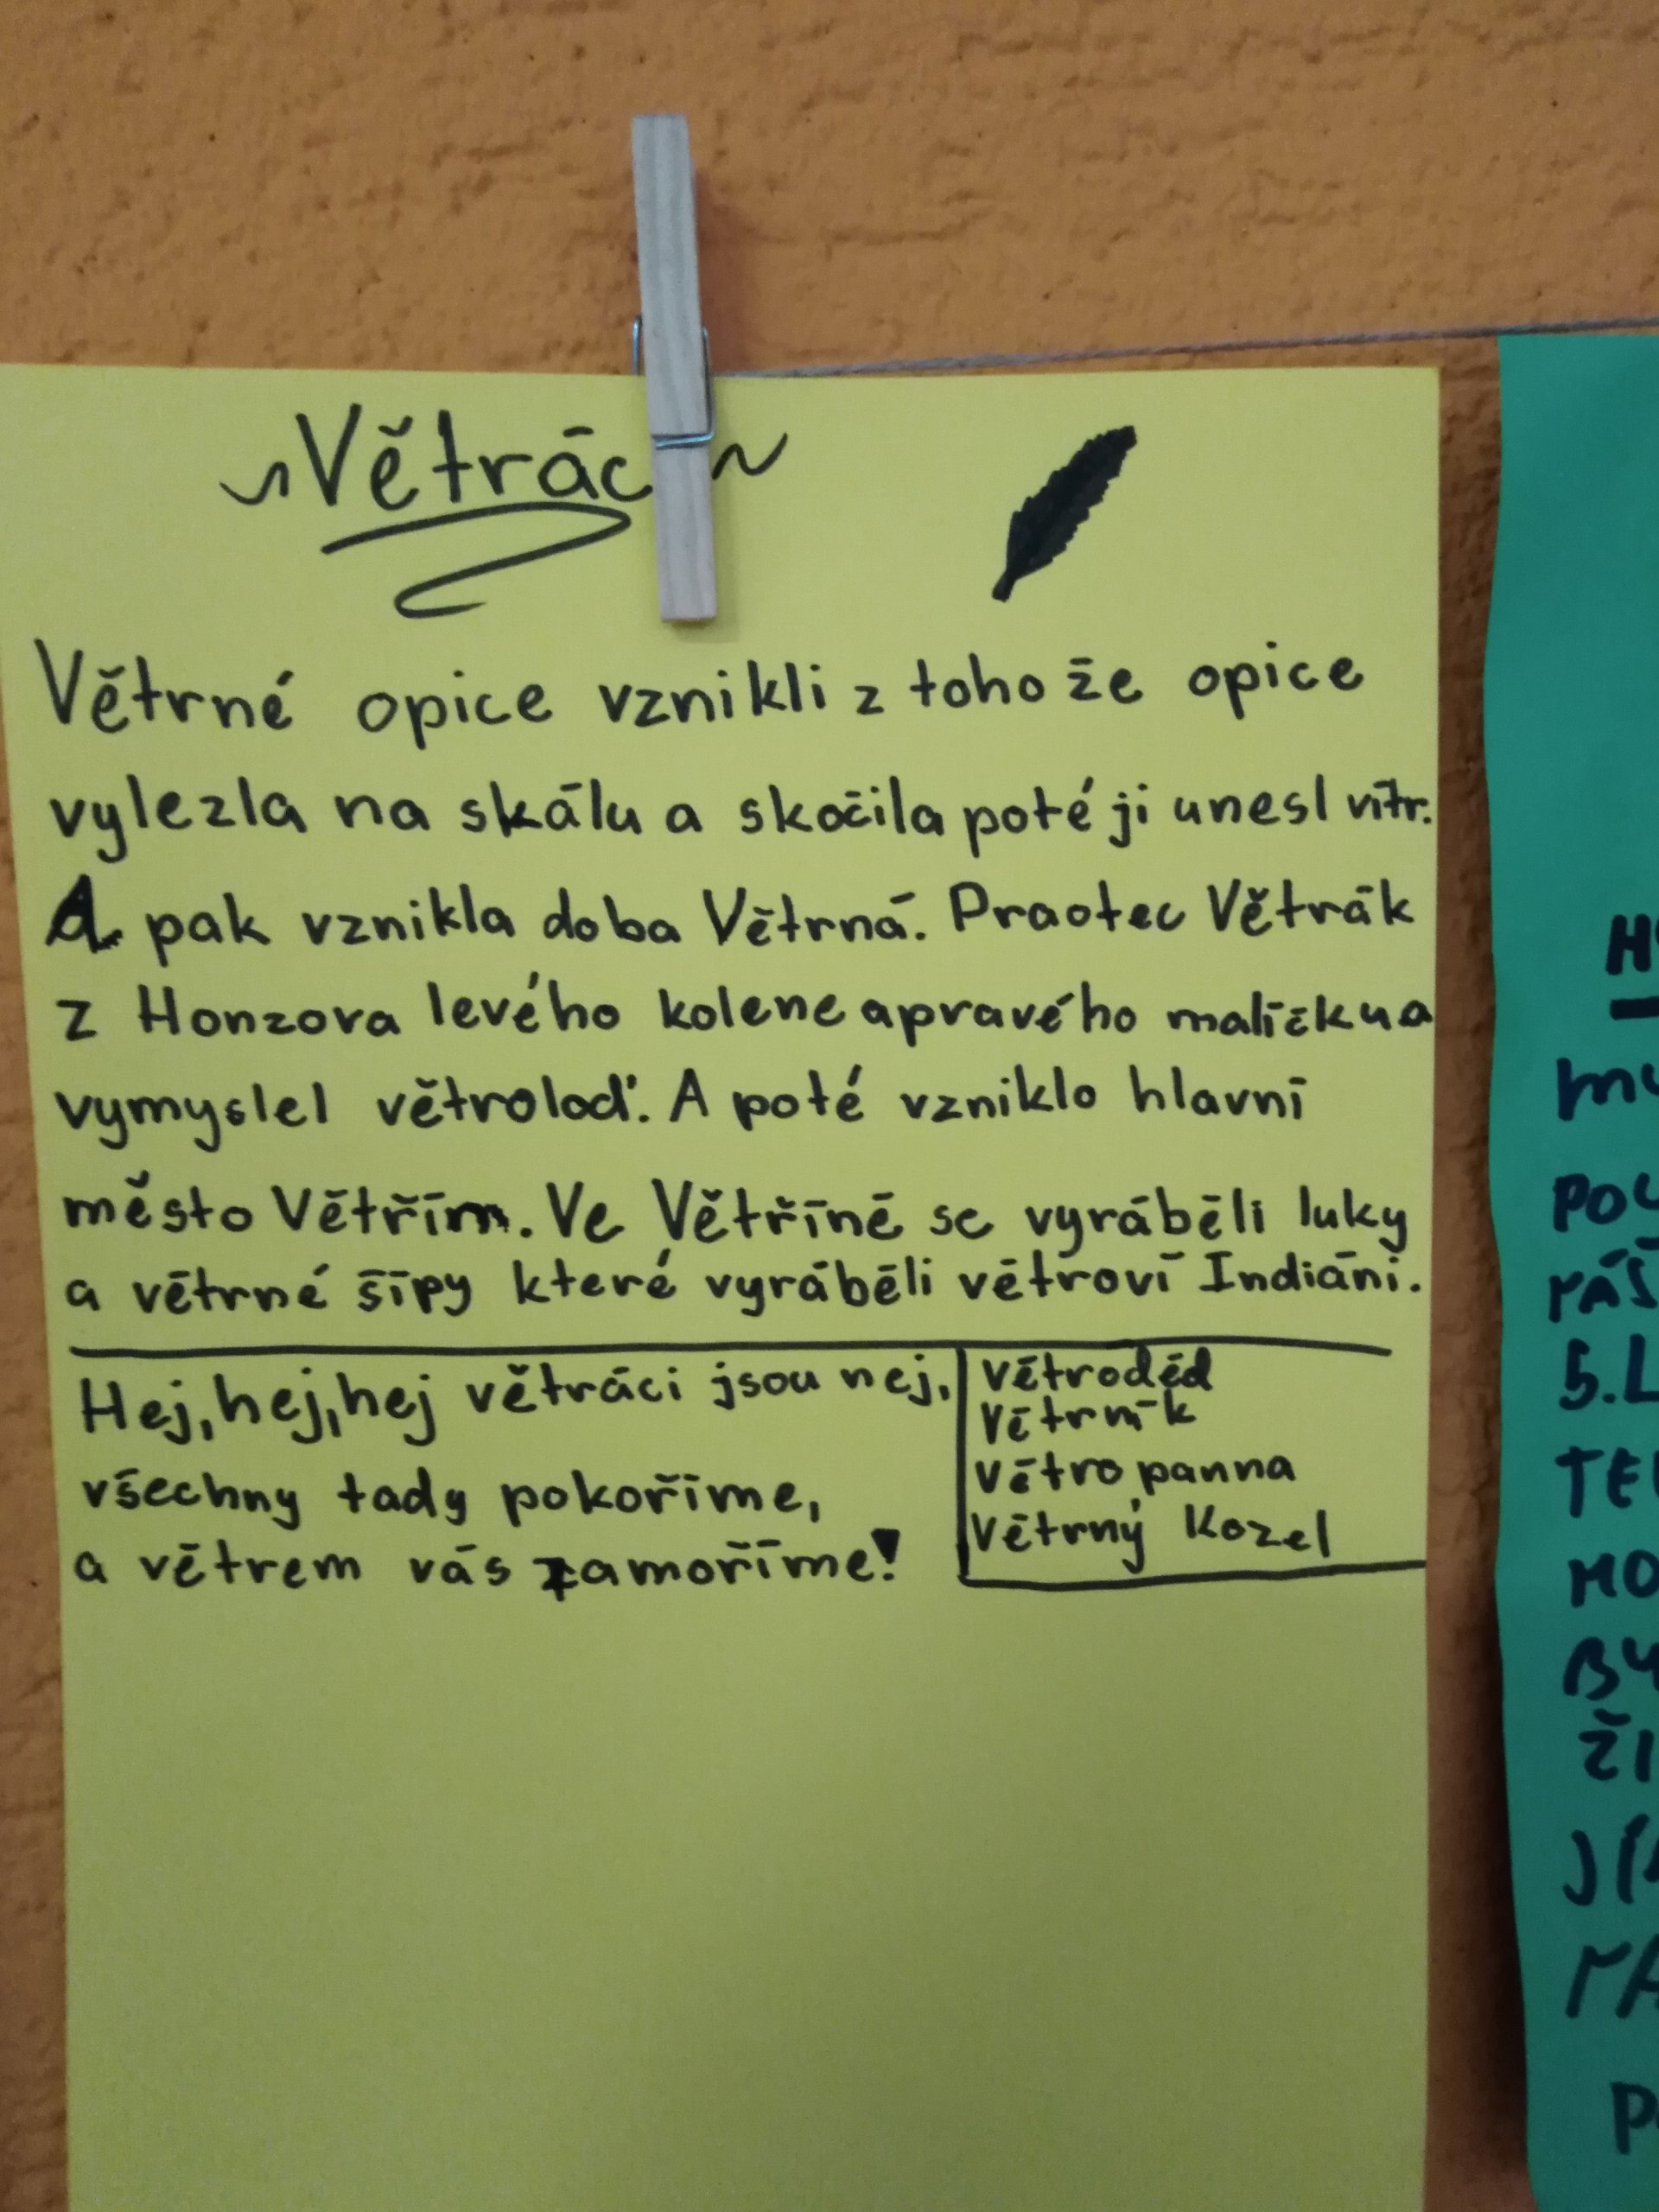 ~Větrác ~
Větrné opice vznikli z toho že opice
vylezla na skálu a skočila poté ji unesl vítr.
A pak vznikla doba Větrná. Praotec Větrák
z Honzova levého kolene a pravého malíčku a
vymyslel větroloď. A poté vzniklo hlavní
město Větřím. Ve Větříně se vyráběli luky
a větrné šípy které vyráběli větroví Indiáni.
Hej, hej, hej větráci jsou nej,
všechny tady pokoříme,
a větrem vás zamoříme!
Větroděd
Větrník
Větropanna
Větrný Kozel
5.L